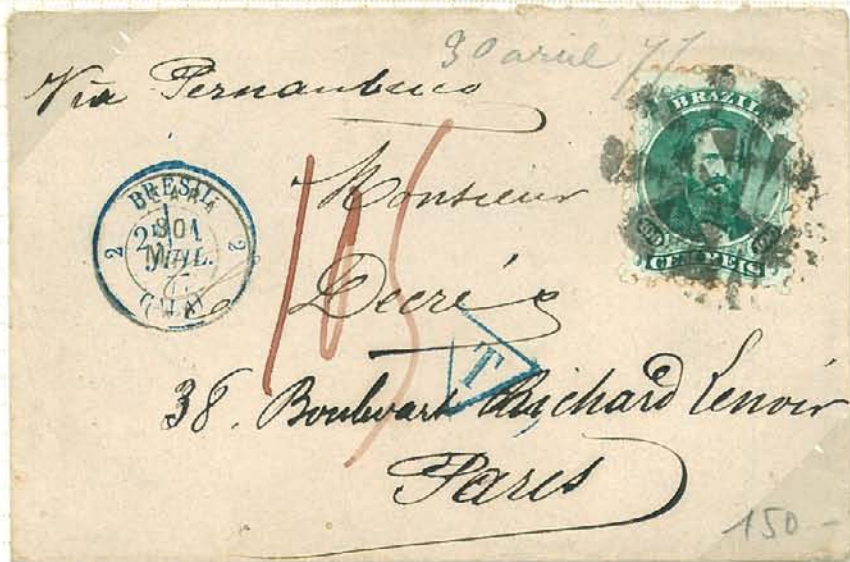 30 avril 77
Via Pernambuco
BRAZIL
CEM REIS
BRESIL
2 2
Monsieur
Decré
105
T
38. Boulevart Richard Lenoir
Paris
150-